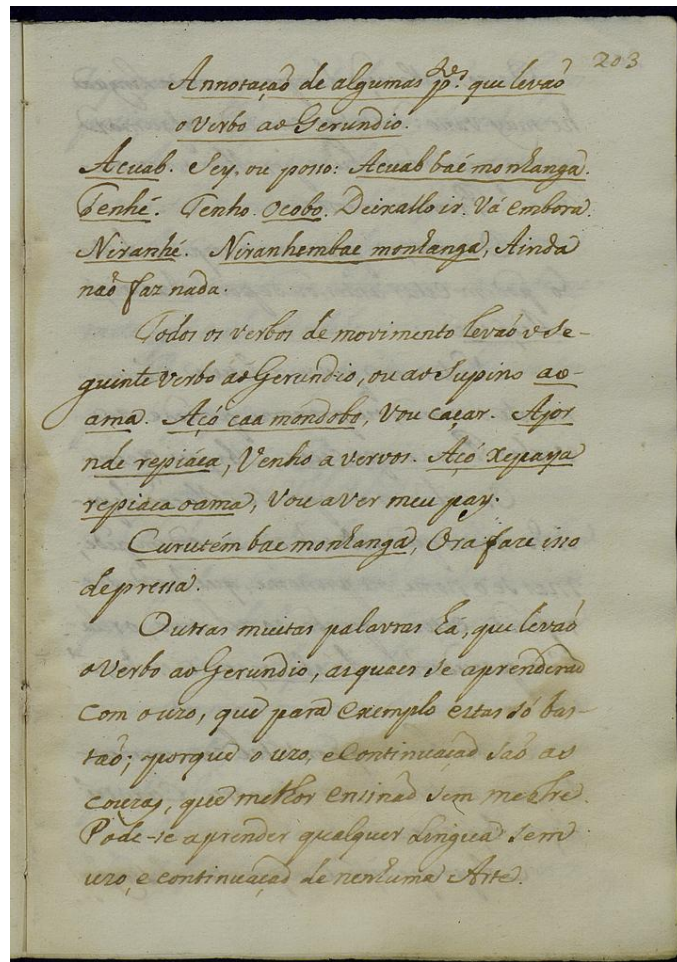 203
Annotação de algumas p.es que levaõ
o Verbo ao Gerundio.
Acuab. Sey, ou posso: Acuab baé monhanga.
Tenhé. Tenho. Ocobo. Deixallo ir. Vá embora.
Niranhé. Niranhembae monhanga, Ainda
naõ faz nada.
Todos os verbos de movimento levaõ o se-
guinte verbo ao Gerundio, ou ao Supino ao-
ama. Açó caa mondobo, Vou caçar. Ajor
nde repiáca, Venho a vervos. Açó xepaya
repiáca oama, Vou a ver meu pay.
Curutém bae monhanga, Ora faze isso
depressa.
Outras muitas palavras ha, que levaõ
o Verbo ao Gerundio, as quaes se aprenderaõ
com o uzo, que para exemplo estas só bas-
taõ; porque o uzo, e Continuaçaõ saõ as
couzas, que melhor ensinaõ sem mestre.
Póde-se aprender qualquer Lingua sem
uzo, e continuaçaõ de nenhuma Arte.